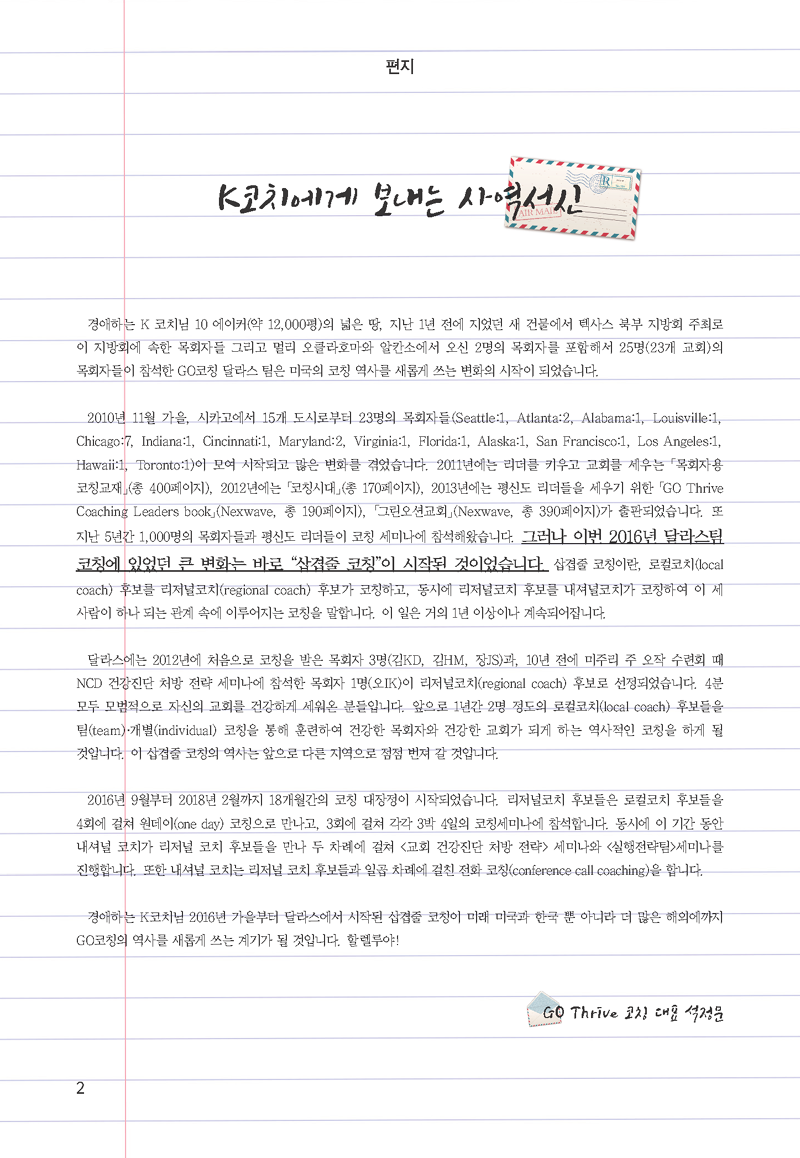 편지
K코치에게 보내는 사역서신
AIR MAIL
경애하는 K 코치님 10 에이커(약 12,000평)의 넓은 땅, 지난 1년 전에 지었던 새 건물에서 텍사스 북부 지방회 주최로
이 지방회에 속한 목회자들 그리고 멀리 오클라호마와 알칸소에서 오신 2명의 목회자를 포함해서 25명(23개 교회)의
목회자들이 참석한 GO코칭 달라스 팀은 미국의 코칭 역사를 새롭게 쓰는 변화의 시작이 되었습니다.
2010년 11월 가을, 시카고에서 15개 도시로부터 23명의 목회자들(Seattle:1, Atlanta:2, Alabama:1, Louisville:1,
Chicago:7, Indiana:1, Cincinnati:1, Maryland:2, Virginia:1, Florida:1, Alaska:1, San Francisco:1, Los Angeles:1,
Hawaii:1, Toronto:1)이 모여 시작되고 많은 변화를 겪었습니다. 2011년에는 리더를 키우고 교회를 세우는 「목회자용
코칭교재」(총 400페이지), 2012년에는 「코칭시대」(총 170페이지), 2013년에는 평신도 리더들을 세우기 위한 「GO Thrive
Coaching Leaders book」(Nexwave, 총 190페이지), 「그린오션교회」(Nexwave, 총 390페이지)가 출판되었습니다. 또
지난 5년간 1,000명의 목회자들과 평신도 리더들이 코칭 세미나에 참석해왔습니다. 그러나 이번 2016년 달라스팀
코칭에 있었던 큰 변화는 바로 “삼겹줄 코칭”이 시작된 것이었습니다. 삼겹줄 코칭이란, 로컬코치(local
coach) 후보를 리저널코치(regional coach) 후보가 코칭하고, 동시에 리저널코치 후보를 내셔널코치가 코칭하여 이 세
사람이 하나 되는 관계 속에 이루어지는 코칭을 말합니다. 이 일은 거의 1년 이상이나 계속되어집니다.
달라스에는 2012년에 처음으로 코칭을 받은 목회자 3명(김KD, 김HM, 장JS)과, 10년 전에 미주리 주 오작 수련회 때
NCD 건강진단 처방 전략 세미나에 참석한 목회자 1명(오IK)이 리저널코치(regional coach) 후보로 선정되었습니다. 4분
모두 모범적으로 자신의 교회를 건강하게 세워온 분들입니다. 앞으로 1년간 2명 정도의 로컬코치(local coach) 후보들을
팀(team)·개별(individual) 코칭을 통해 훈련하여 건강한 목회자와 건강한 교회가 되게 하는 역사적인 코칭을 하게 될
것입니다. 이 삼겹줄 코칭의 역사는 앞으로 다른 지역으로 점점 번져 갈 것입니다.
2016년 9월부터 2018년 2월까지 18개월간의 코칭 대장정이 시작되었습니다. 리저널코치 후보들은 로컬코치 후보들을
4회에 걸쳐 원데이(one day) 코칭으로 만나고, 3회에 걸쳐 각각 3박 4일의 코칭세미나에 참석합니다. 동시에 이 기간 동안
내셔널 코치가 리저널 코치 후보들을 만나 두 차례에 걸쳐 <교회 건강진단 처방 전략> 세미나와 <실행전략팀>세미나를
진행합니다. 또한 내셔널 코치는 리저널 코치 후보들과 일곱 차례에 걸친 전화 코칭(conference call coaching)을 합니다.
경애하는 K코치님 2016년 가을부터 달라스에서 시작된 삼겹줄 코칭이 미래 미국과 한국 뿐 아니라 더 많은 해외에까지
GO코칭의 역사를 새롭게 쓰는 계기가 될 것입니다. 할렐루야!
GO Thrive 코칭 대표 석정문
2